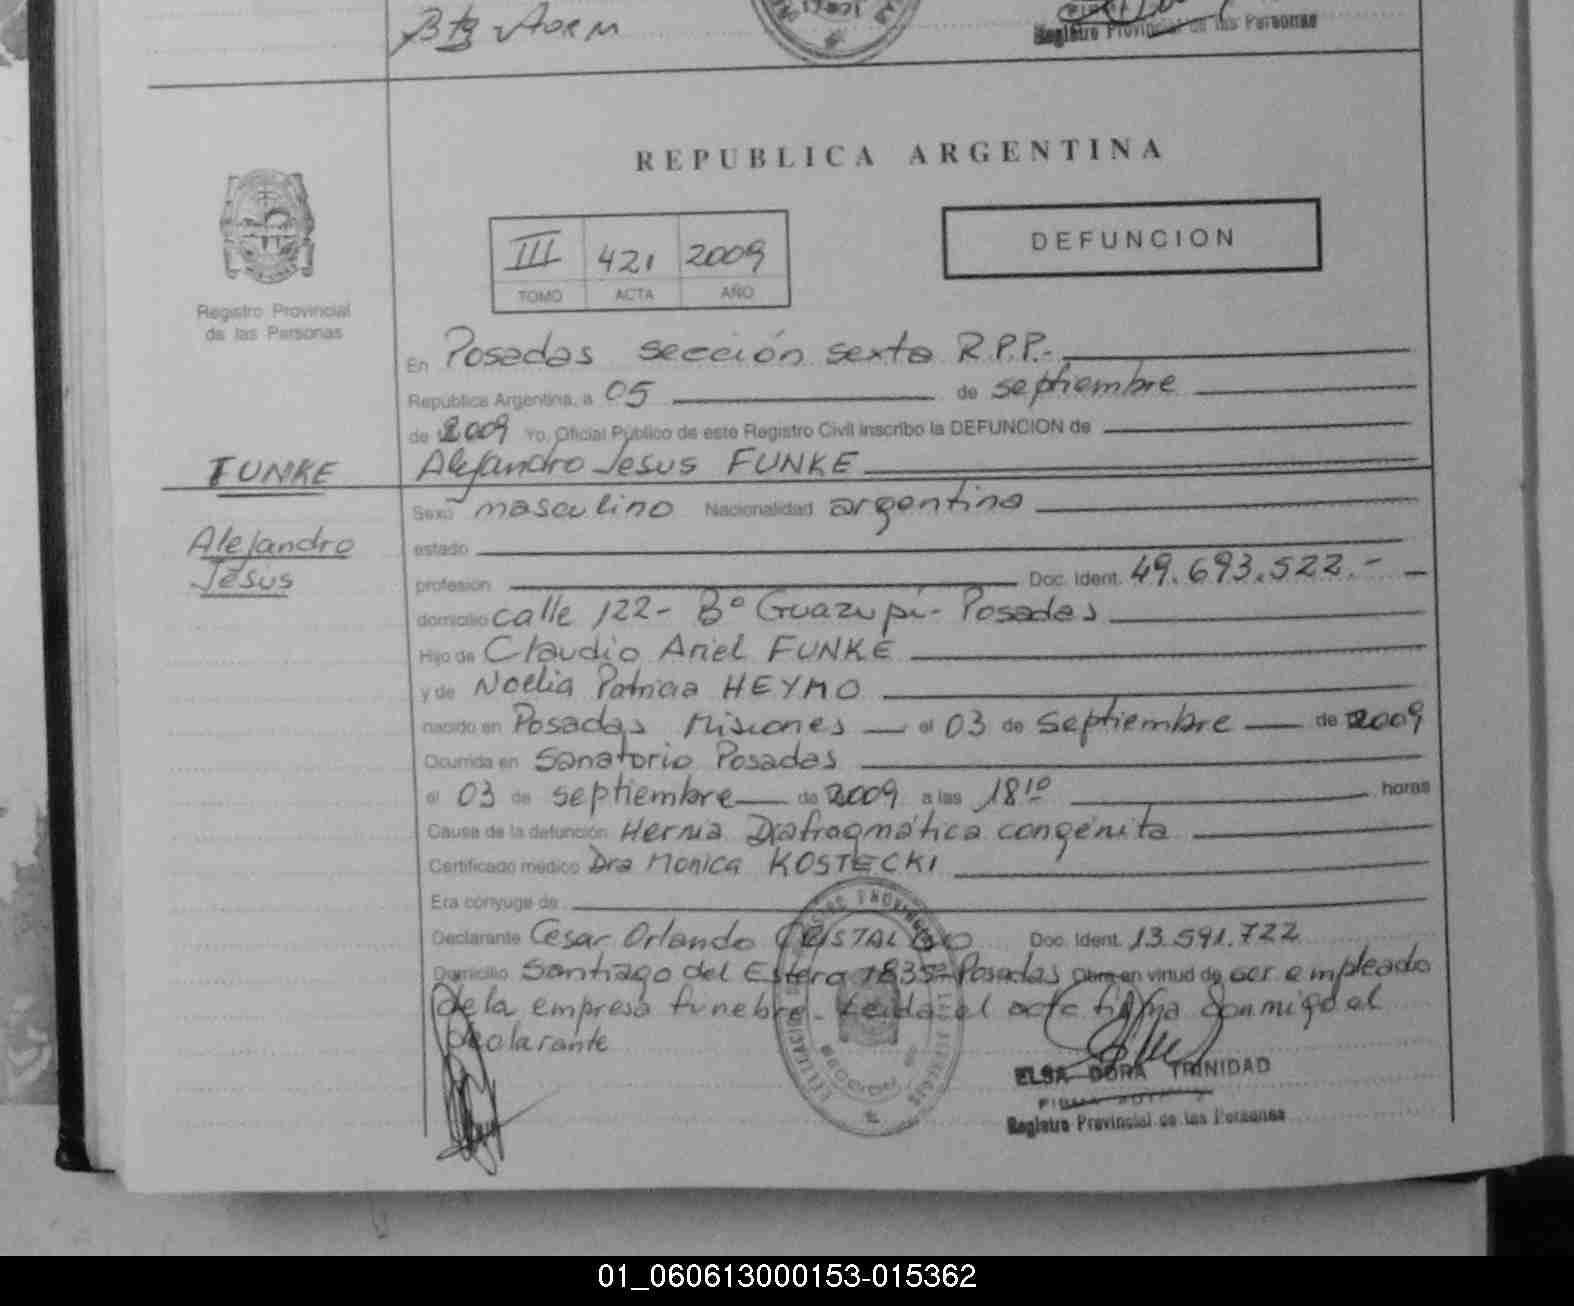 Registro Provincial de las Personas
REPUBLICA ARGENTINA
DEFUNCION
III 421 2009
TOMO ACTA AÑO
Registro Provincial
de las Personas
En Posadas sección sexta R.P.P.-
República Argentina, a 05 de septiembre
de 2009 Yo, Oficial Público de este Registro Civil inscribo la DEFUNCION de
FUNKE
Alejandro Jesus FUNKE
Sexo masculino Nacionalidad argentina
Alejandro
Jesus
estado
profesión Doc. Ident. 49.693.522.-
domicilio calle 122- Bº Guazupi- Posadas
Hijo de Claudio Ariel FUNKE
y de Noelia Patricia HEYMO
nacido en Posadas Misiones el 03 de septiembre de 2009
Ocurrida en Sanatorio Posadas
el 03 de septiembre de 2009 a las 18¹⁰ horas
Causa de la defunción Hernia Diafragmática congénita
Certificado médico Dra Monica KOSTECKI
Era cónyuge de
Declarante Cesar Orlando CRISTALDO Doc. Ident. 13.591.722
Domicilio Santiago del Estero 1835- Posadas Obra en virtud de ser empleado
de la empresa funebre- Leida el acta firma conmigo el
declarante
ELSA DORA TRINIDAD
Registro Provincial de las Personas
01_060613000153-015362